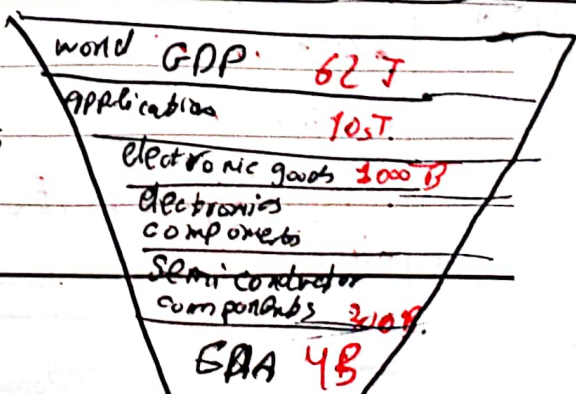 world GDP 62 T
Application
10sT.
electronic goods 1000 B
electronics
components
semiconductor
components 310B.
EDA 4B